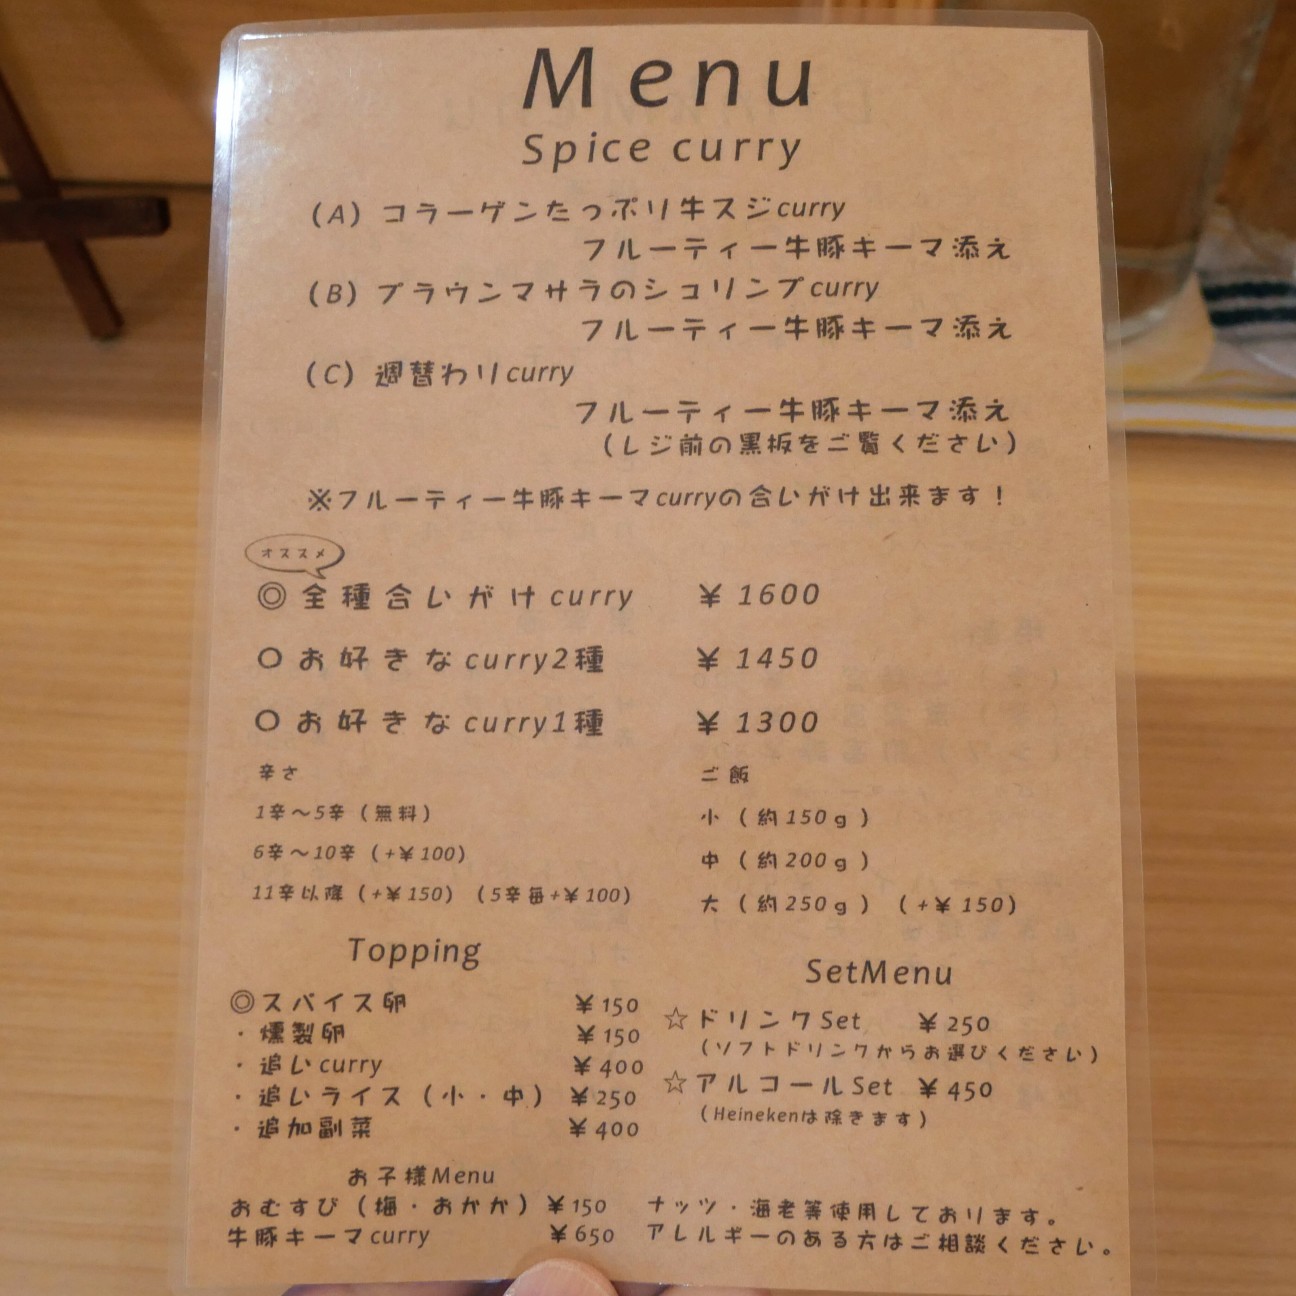 Menu
Spice curry
（A）コラーゲンたっぷり牛スジcurry
フルーティー牛豚キーマ添え
（B）ブラウンマサラのシュリンプcurry
フルーティー牛豚キーマ添え
（C）週替わりcurry
フルーティー牛豚キーマ添え
（レジ前の黒板をご覧ください）
※フルーティー牛豚キーマcurryの合いがけ出来ます！
オススメ
◎全種合いがけcurry ¥1600
〇お好きなcurry2種 ¥1450
〇お好きなcurry1種 ¥1300
辛さ
1辛～5辛（無料）
6辛～10辛（+¥100）
11辛以降（+¥150）（5辛毎+¥100）
ご飯
小（約150g）
中（約200g）
大（約250g）（+¥150）
Topping
◎スパイス卵 ¥150
・燻製卵 ¥150
・追いcurry ¥400
・追いライス（小・中） ¥250
・追加副菜 ¥400
SetMenu
☆ドリンクSet ¥250
（ソフトドリンクからお選びください）
☆アルコールSet ¥450
（Heinekenは除きます）
お子様Menu
おむすび（梅・おかか） ¥150
牛豚キーマcurry ¥650
ナッツ・海老等使用しております。
アレルギーのある方はご相談ください。